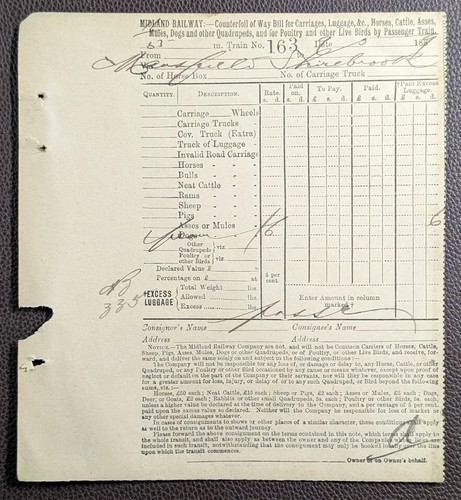 MIDLAND RAILWAY:—Counterfoil of Way Bill for Carriages, Luggage, &c., Horses, Cattle, Asses,
Mules, Dogs and other Quadrupeds, and for Poultry and other Live Birds by Passenger Train.
m. Train No. 163 Date 18
From Mansfield Shirebrook
No. of Horse Box No. of Carriage Truck
QUANTITY. DESCRIPTION. Rate. s. d. Paid on. s. d. To Pay. £ s. d. Paid. £ s. d. † Paid Excess Luggage. £ s. d.
Carriage Wheels
Carriage Trucks
Cov. Truck (Extra)
Truck of Luggage
Invalid Road Carriage
Horses
Bulls
Neat Cattle
Rams
Sheep
Pigs
Asses or Mules
Dogs /6 6
Other Quadrupeds } viz
Poultry or other Birds } viz
Declared Value £
Percentage on £ at £ per cent.
†EXCESS LUGGAGE { Total Weight lbs.
Allowed lbs.
Excess lbs.
Enter Amount in column marked †
335
Consignor's Name Consignee's Name
Address Address
NOTICE.—The Midland Railway Company are not, and will not be Common Carriers of Horses, Cattle,
Sheep, Pigs, Asses, Mules, Dogs or other Quadrupeds, or of Poultry, or other Live Birds, and receive, forward,
and deliver the same solely on and subject to the following conditions:—
The Company will not be responsible for any loss of, or damage or delay to, any Horse, Cattle, or other
Quadruped, or any Poultry or other Bird occasioned by any cause or reason whatever, except upon proof of
neglect or default on the part of the Company or their servants, nor will they be responsible in any case
for a greater amount for loss, injury, or delay of or to any such Quadruped, or Bird beyond the following
sums, viz.:—
Horses, £50 each; Neat Cattle, £15 each; Sheep or Pigs, £2 each; Asses or Mules, £5 each; Dogs,
Deer, or Goats, £2 each; Rabbits or other small Quadrupeds, 5s. each; Poultry or other Birds, 5s. each,
unless a higher value be declared at time of delivery to the Company, and a per centage of 5 per cent.
paid upon the excess value so declared. Neither will the Company be responsible for loss of market or
any other special damages whatever.
In cases of consignments to shows or other places of a similar character, these conditions shall apply
as well to the return as to the outward journey.
Please forward the above consignment on the terms contained in this note, which terms shall apply to
the whole transit, and shall also apply as between the owner and any of the Companies whose lines are
included in such transit, notwithstanding that the consignment may only be booked over the line
upon which the transit commences.
Owner or on Owner's behalf.